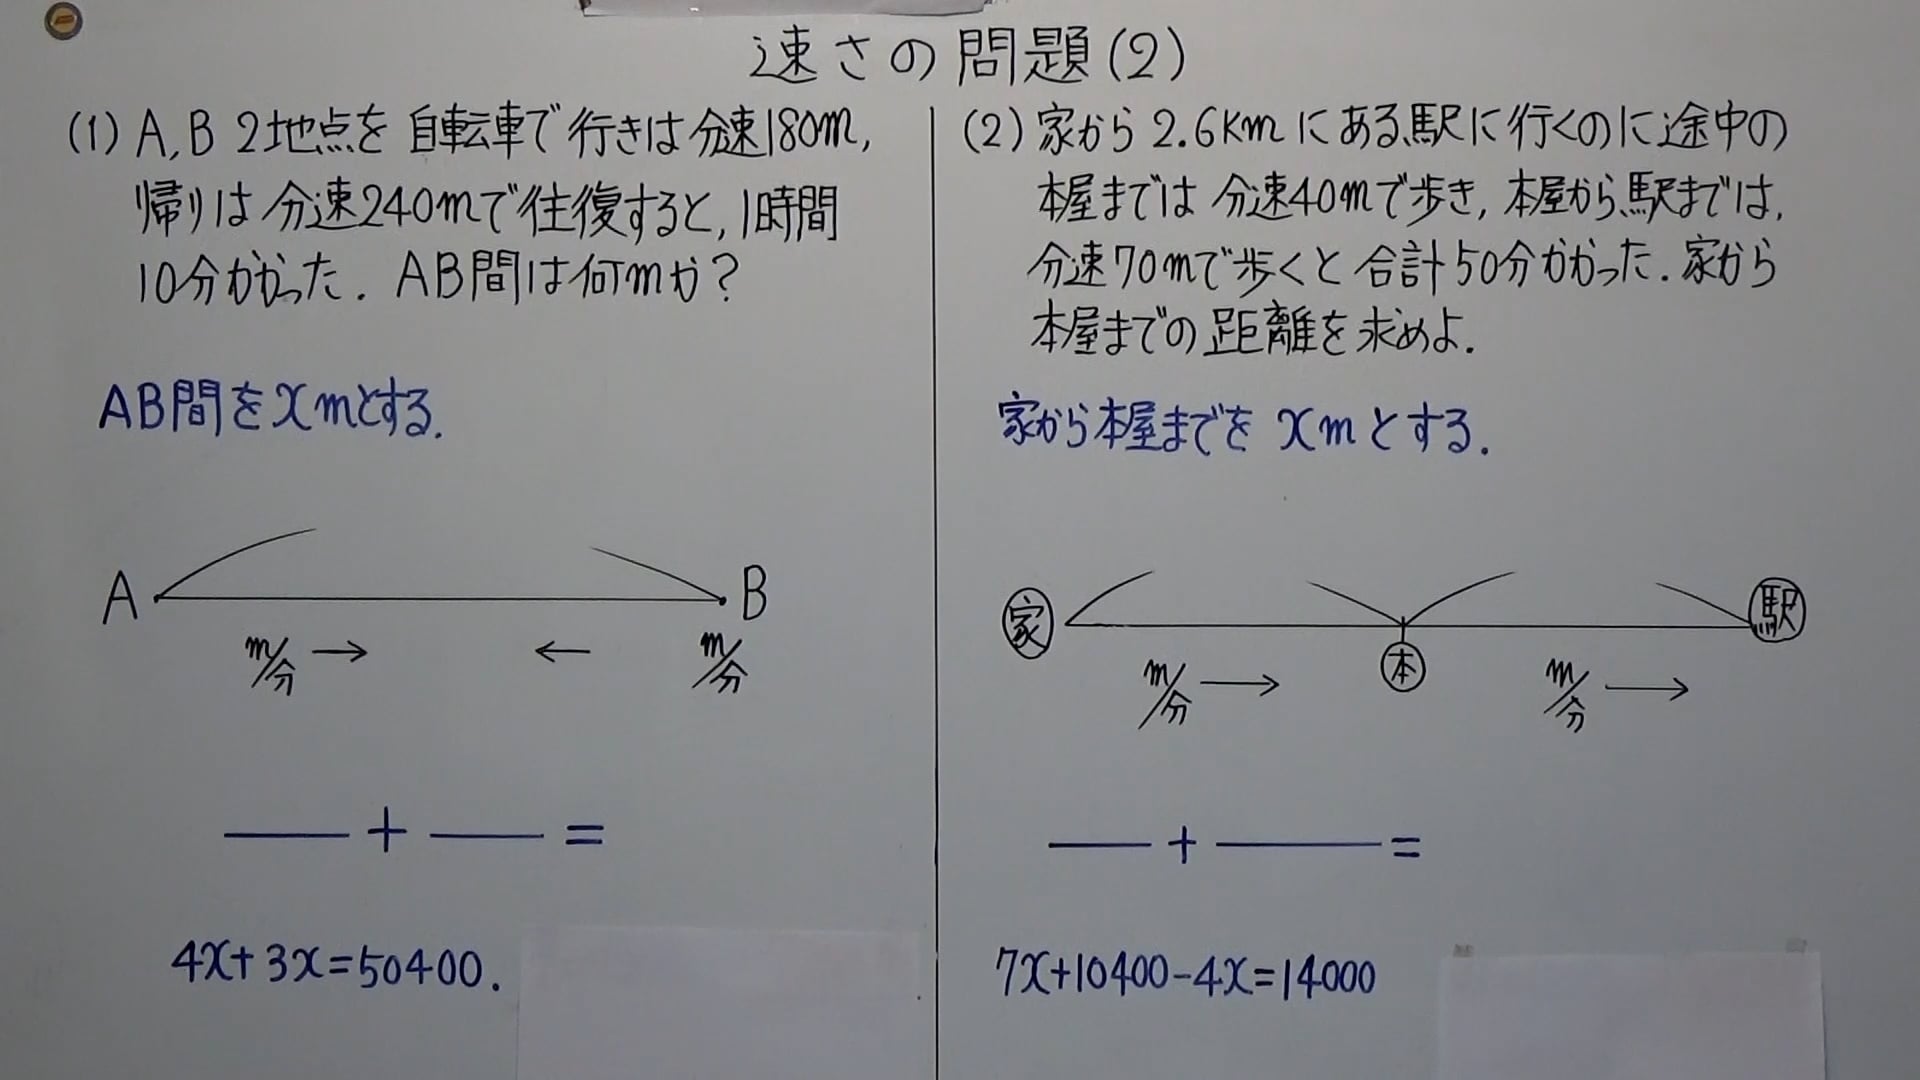 速さの問題(2)
(1) A,B 2地点を自転車で行きは分速180m,
帰りは分速240mで往復すると,1時間
10分かかった. AB間は何mか?
AB間をxmとする.
A
B
m/分 → ← m/分
+ =
4x+3x=50400.
(2) 家から2.6Kmにある駅に行くのに途中の
本屋までは分速40mで歩き,本屋から駅までは,
分速70mで歩くと合計50分かかった.家から
本屋までの距離を求めよ.
家から本屋までを xmとする.
家
駅
本
m/分 → m/分 →
+ =
7x+10400-4x=14000